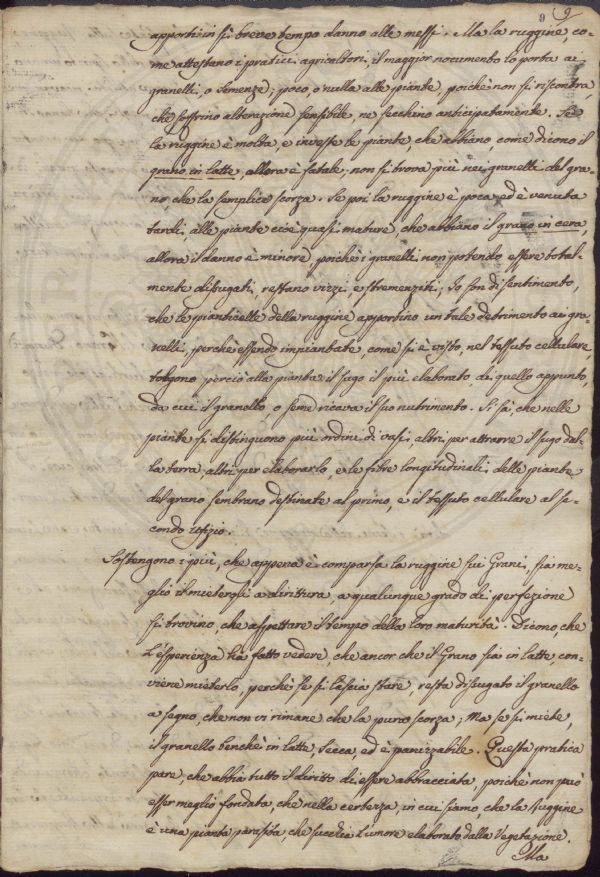 9 9
apporti in sì breve tempo danno alle messi. Ma la ruggine, co-
me attestano i pratici agricoltori, il maggior nocumento lo porta ai
granelli, o semenze; poco, o nulla alle piante, poichè non si riscontra,
che soffrino alterazione sensibile, nè secchino anticipatamente. Se
la ruggine è molta, e investe le piante che abbiano, come dicono il
grano in latte, allora è fatale; non si trova più nei granelli del gra-
no che la semplice scorza. Se poi la ruggine è poca, ed è venuta
tardi, alle piante cioè quasi mature, che abbiano il grano in cera,
allora il danno è minore, poichè i granelli non potendo essere total-
mente disugati, restano vizzi, e stremenziti; Io son di sentimento,
che le pianticelle della ruggine apportino un tale detrimento ai gra-
nelli, perchè essendo impiantate, come si è visto, nel tessuto cellulare,
tolgono perciò alla pianta il sugo il più elaborato, di quello appunto,
da cui il granello, o seme ricava il suo nutrimento. Si sà, che nelle
piante si distinguono più ordini di vasi, altri per attrarre il sugo dal-
la terra, altri per elaborarlo, e le fibre longitudinali delle piante
del grano sembrano destinate al primo, e il tessuto cellulare al se-
condo ufizio.
Sostengono i più, che appena è comparsa la ruggine sui Grani, sia me-
glio il mieterli a dirittura a qualunque grado di perfezione
si trovino, che aspettare il tempo della loro maturità. Dicono, che
l'esperienza ha fatto vedere, che ancor che il Grano sia in latte, con-
viene mieterlo, perchè se si lascia stare, resta disugato il granello
a segno, che non vi rimane che la pura scorza; Ma se si miete,
il granello benchè in latte, secca, ed è panizzabile. Questa pratica
pare, che abbia tutto il diritto di essere abbracciata, poichè non può
esser meglio fondata, che nella certezza, in cui siamo, che la ruggine
è una pianta parasita, che succhia l'umore elaborato dalla Vegetazione.
Ma